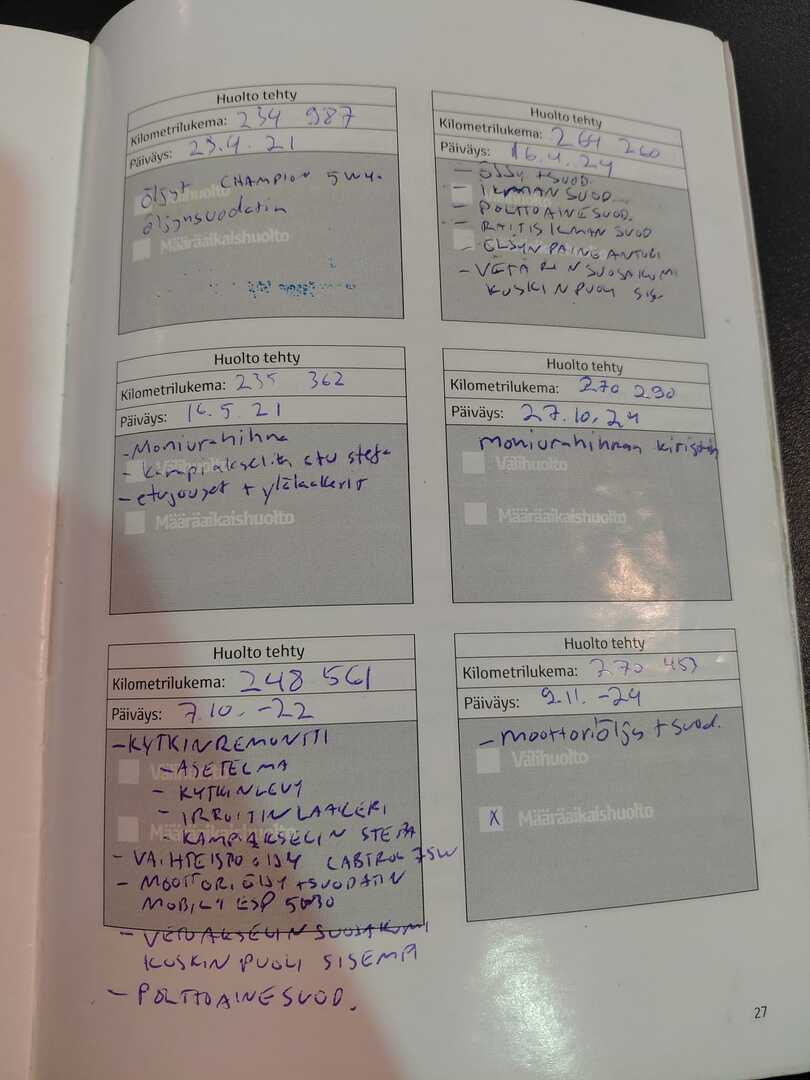 Huolto tehty
Kilometrilukema: 234 987
Päiväys: 23.4.21
Öljyt CHAMPION 5W4.
Öljynsuodatin
Välihuolto
Määräaikaishuolto
Huolto tehty
Kilometrilukema: 235 362
Päiväys: 16.5.21
- Moniurahihna
- kampiakselin etu stefa
- etujouset + ylälaakerit
Välihuolto
Määräaikaishuolto
Huolto tehty
Kilometrilukema: 248 561
Päiväys: 7.10.-22
- KYTKINREMONTTI
- ASETELMA
- KYTKINLEVY
- IRROITINLAAKERI
- KAMPIAKSELIN STEFA
- VAIHTEISTOÖLJY 75W
- MOOTTORIÖLJY + SUODATIN
MOBIL 1 ESP 5W30
- VETOAKSELIN SUOJAKUMI
KUSKIN PUOLI SISEMPI
- POLTTOAINESUOD.
Välihuolto
Määräaikaishuolto
Huolto tehty
Kilometrilukema: 264 260
Päiväys: 16.4.24
- ÖLJY + SUOD.
- ILMANSUOD.
- POLTTOAINESUOD.
- RAITISILMANSUOD
- ÖLJYNPAINEANTURI
- SUOJAKUMI
KUSKIN PUOLI SIS.
Huolto tehty
Kilometrilukema: 270 290
Päiväys: 27.10.24
moniurahihnan kiristin
Välihuolto
Määräaikaishuolto
Huolto tehty
Kilometrilukema: 270 453
Päiväys: 9.11.-24
- moottoriöljy + suod.
Välihuolto
X Määräaikaishuolto
27